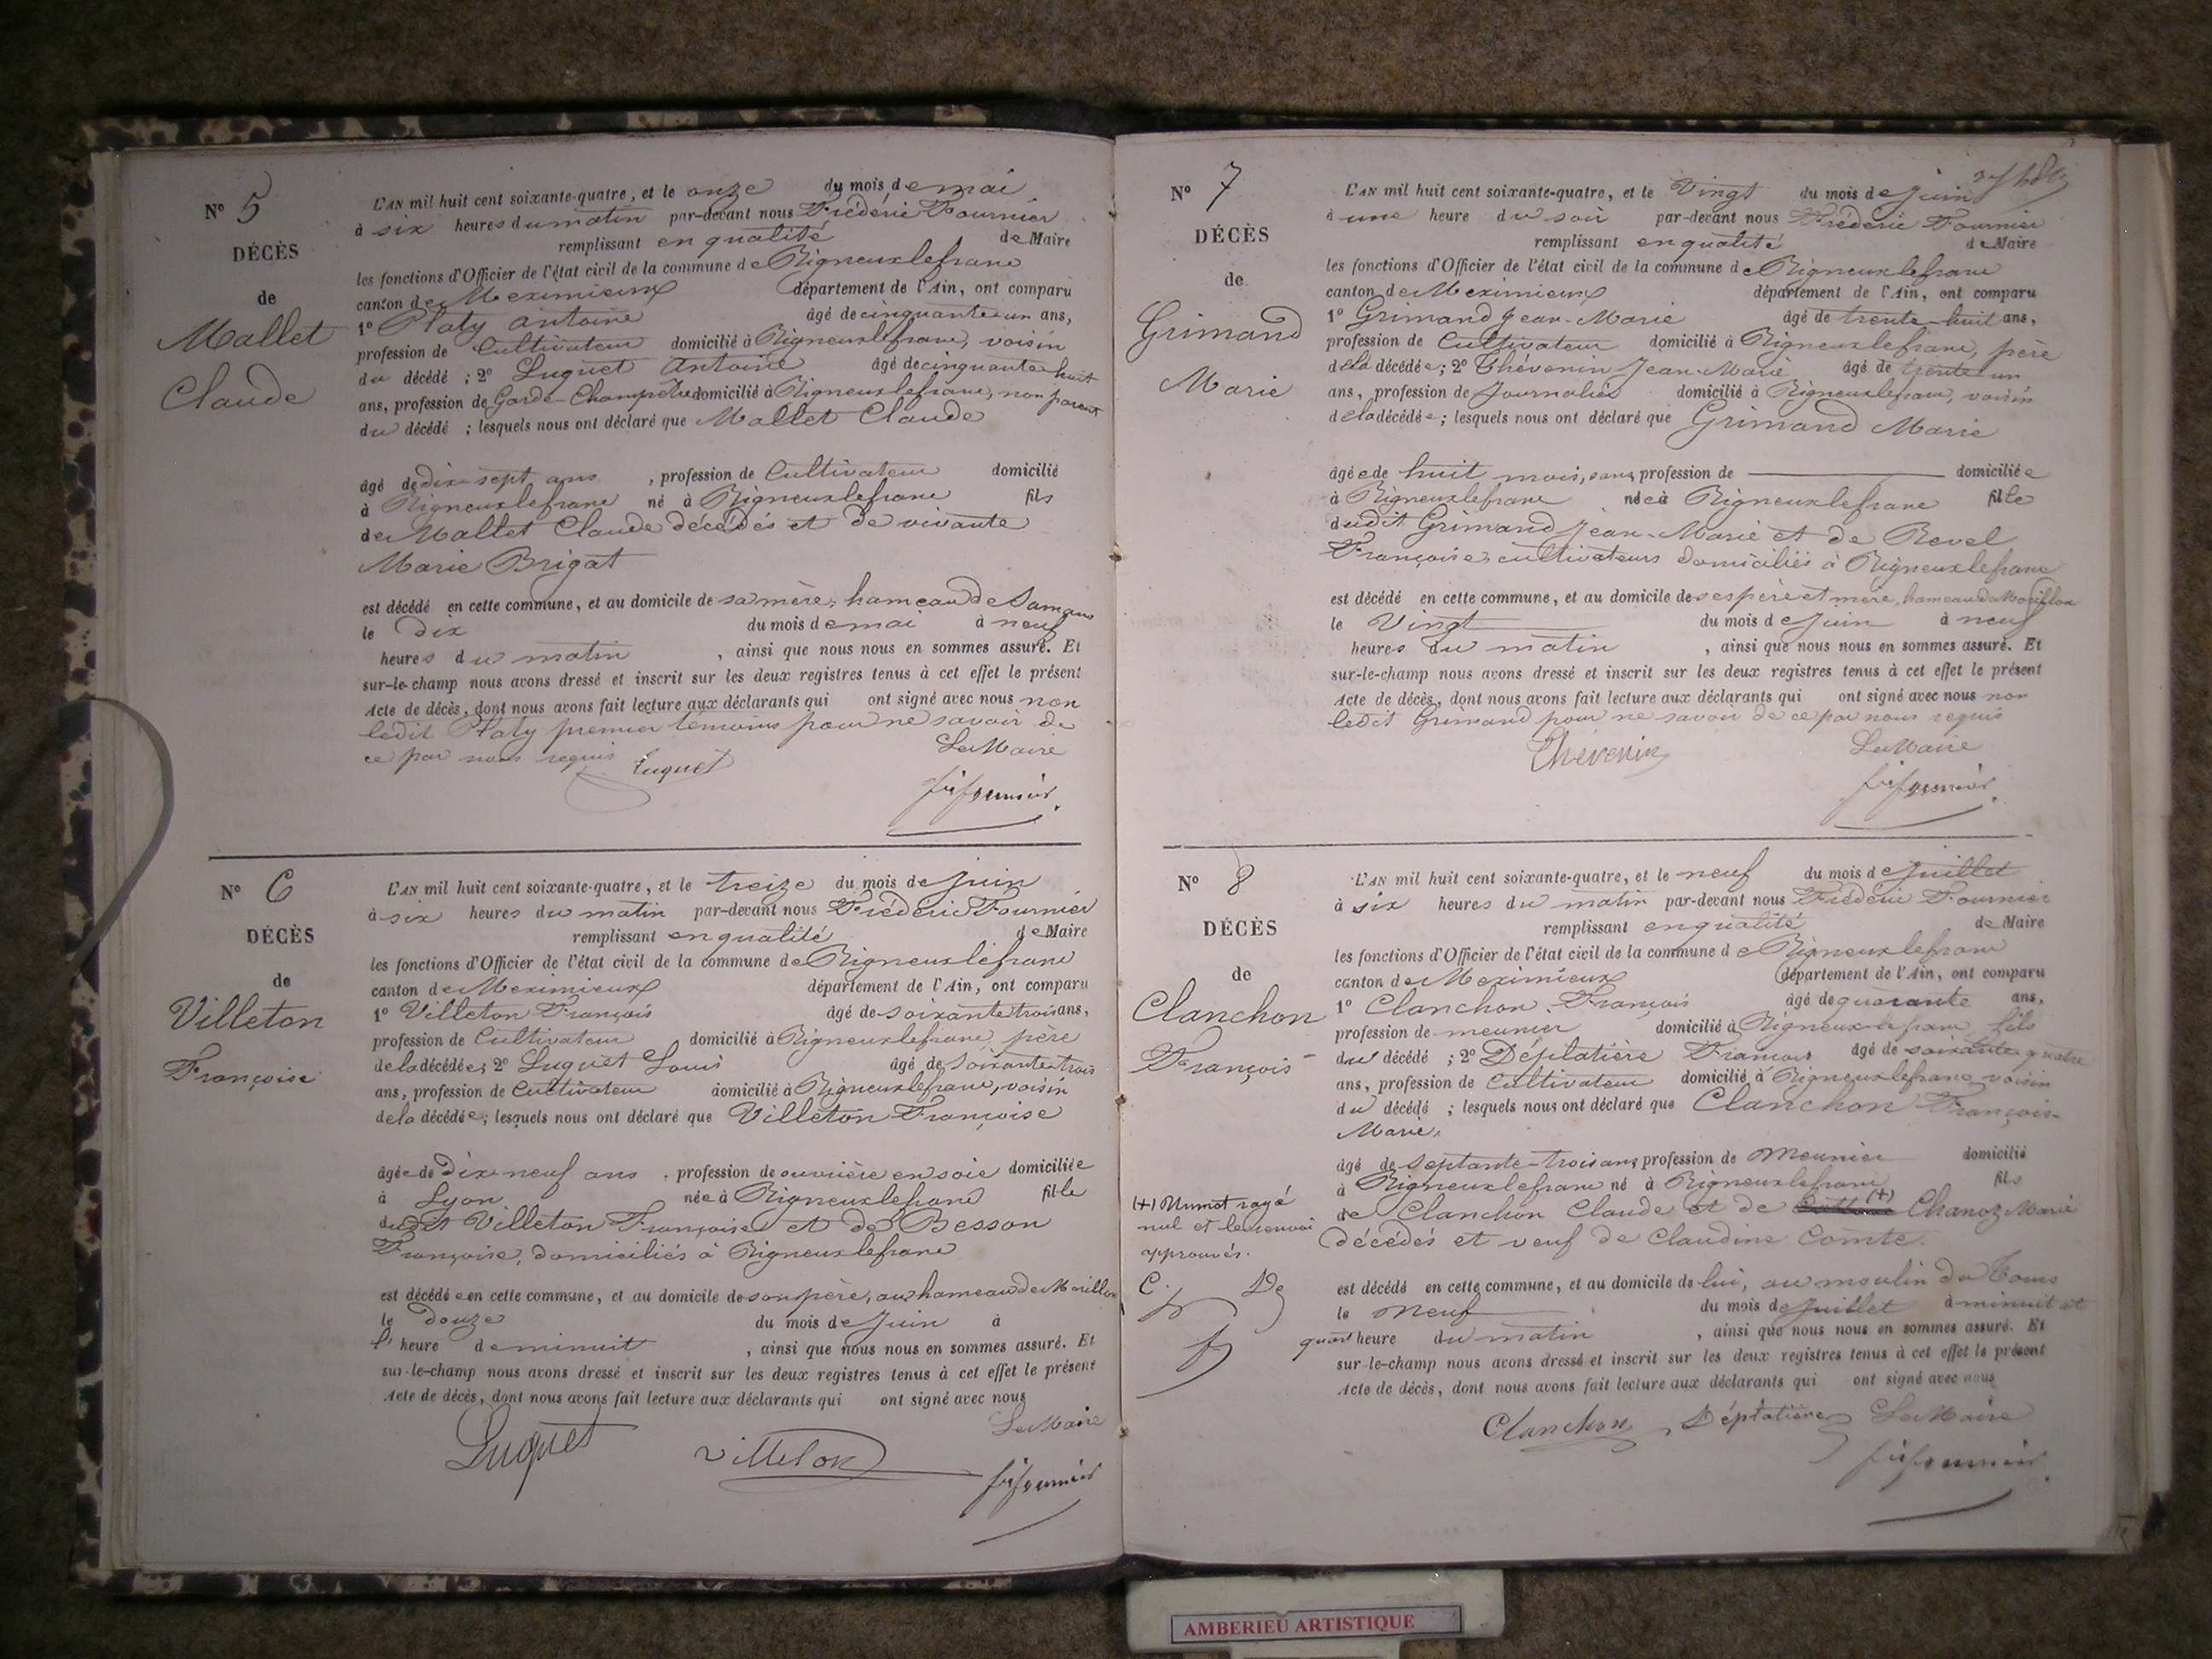 N° 5
DÉCÈS
de
Mallet
Claude
L'AN mil huit cent soixante-quatre, et le onze du mois de mai
à six heures du matin par-devant nous Frédéric Fournier
remplissant en qualité de Maire
les fonctions d'Officier de l'état civil de la commune de Rigneuxlefranc
canton de Meximieux département de l'Ain, ont comparu
1° Platy Antoine âgé de cinquante un ans,
profession de Cultivateur domicilié à Rigneuxlefranc, voisin
du décédé ; 2° Luquet Antoine âgé de cinquante huit
ans, profession de Garde-Champêtre domicilié à Rigneuxlefranc, non parent
du décédé ; lesquels nous ont déclaré que Mallet Claude
âgé de dix-sept ans , profession de Cultivateur domicilié
à Rigneuxlefranc né à Rigneuxlefranc fils
de Mallet Claude décédés et de vivante
Marie Brigat
est décédé en cette commune, et au domicile de sa mère, hameau de Samans
le dix du mois de mai à neuf
heures du matin , ainsi que nous nous en sommes assuré. Et
sur-le-champ nous avons dressé et inscrit sur les deux registres tenus à cet effet le présent
Acte de décès, dont nous avons fait lecture aux déclarants qui ont signé avec nous non
ledit Platy premier temoins pour ne savoir de
ce par nous requis Luquet Le Maire
N° 6
DÉCÈS
de
Villeton
Françoise
L'AN mil huit cent soixante-quatre, et le treize du mois de juin
à six heures du matin par-devant nous Frédéric Fournier
remplissant en qualité de Maire
les fonctions d'Officier de l'état civil de la commune de Rigneuxlefranc
canton de Meximieux département de l'Ain, ont comparu
1° Villeton François âgé de soixante trois ans,
profession de Cultivateur domicilié à Rigneuxlefranc, père
de la décédée; 2° Luquet Louis âgé de soixante trois
ans, profession de Cultivateur domicilié à Rigneuxlefranc, voisin
de la décédée; lesquels nous ont déclaré que Villeton Françoise
âgée de dix-neuf ans , profession de ouvrière en soie domiciliée
à Lyon née à Rigneuxlefranc fille
dudit Villeton François et de Besson
Françoise, domiciliés à Rigneuxlefranc
est décédée en cette commune, et au domicile de son père, au hameau de Morillon
le douze du mois de juin à
l'heure de minuit , ainsi que nous nous en sommes assuré. Et
sur-le-champ nous avons dressé et inscrit sur les deux registres tenus à cet effet le présent
Acte de décès, dont nous avons fait lecture aux déclarants qui ont signé avec nous
Le Maire
Luquet Villeton
N° 7
DÉCÈS
de
Grimand
Marie
L'AN mil huit cent soixante-quatre, et le Vingt du mois de juin
à une heure du soir par-devant nous Frédéric Fournier
remplissant en qualité de Maire
les fonctions d'Officier de l'état civil de la commune de Rigneuxlefranc
canton de Meximieux département de l'Ain, ont comparu
1° Grimand Jean-Marie âgé de trente-huit ans,
profession de Cultivateur domicilié à Rigneuxlefranc, père
de la décédée; 2° Thévenin Jean-Marie âgé de trente un
ans, profession de Journalier domicilié à Rigneuxlefranc, voisin
de la décédée; lesquels nous ont déclaré que Grimand Marie
âgée de huit mois, sans profession de domiciliée
à Rigneuxlefranc née à Rigneuxlefranc fille
dudit Grimand Jean-Marie et de Revel
Françoise, cultivateurs domiciliés à Rigneuxlefranc
est décédé en cette commune, et au domicile de ses père et mère, hameau de Morillon
le Vingt du mois de juin à neuf
heures du matin , ainsi que nous nous en sommes assuré. Et
sur-le-champ nous avons dressé et inscrit sur les deux registres tenus à cet effet le présent
Acte de décès, dont nous avons fait lecture aux déclarants qui ont signé avec nous non
ledit Grimand pour ne savoir de ce par nous requis
Thévenin Le Maire
N° 8
DÉCÈS
de
Clanchon
François
L'AN mil huit cent soixante-quatre, et le neuf du mois de juillet
à six heures du matin par-devant nous Frédéric Fournier
remplissant en qualité de Maire
les fonctions d'Officier de l'état civil de la commune de Rigneuxlefranc
canton de Meximieux département de l'Ain, ont comparu
1° Clanchon François âgé de quarante ans,
profession de meunier domicilié à Rigneux-le-franc, fils
du décédé ; 2° Déplatière François âgé de soixante quatre
ans, profession de Cultivateur domicilié à Rigneuxlefranc voisin
du décédé ; lesquels nous ont déclaré que Clanchon François-
Marie,
âgé de septante-trois ans profession de Meunier domicilié
à Rigneuxlefranc né à Rigneuxlefranc fils
de Clanchon Claude et de (+) Chanoz Marie
décédés et veuf de Claudine Comte.
est décédé en cette commune, et au domicile de lui, au moulin du
le Neuf du mois de juillet à minuit et
quart heure du matin , ainsi que nous nous en sommes assuré. Et
sur-le-champ nous avons dressé et inscrit sur les deux registres tenus à cet effet le présent
Acte de décès, dont nous avons fait lecture aux déclarants qui ont signé avec nous
Clanchon Déplatière Le Maire
(+) Un mot rayé
nul et le renvoi
approuvés.
C. De
AMBERIEU ARTISTIQUE